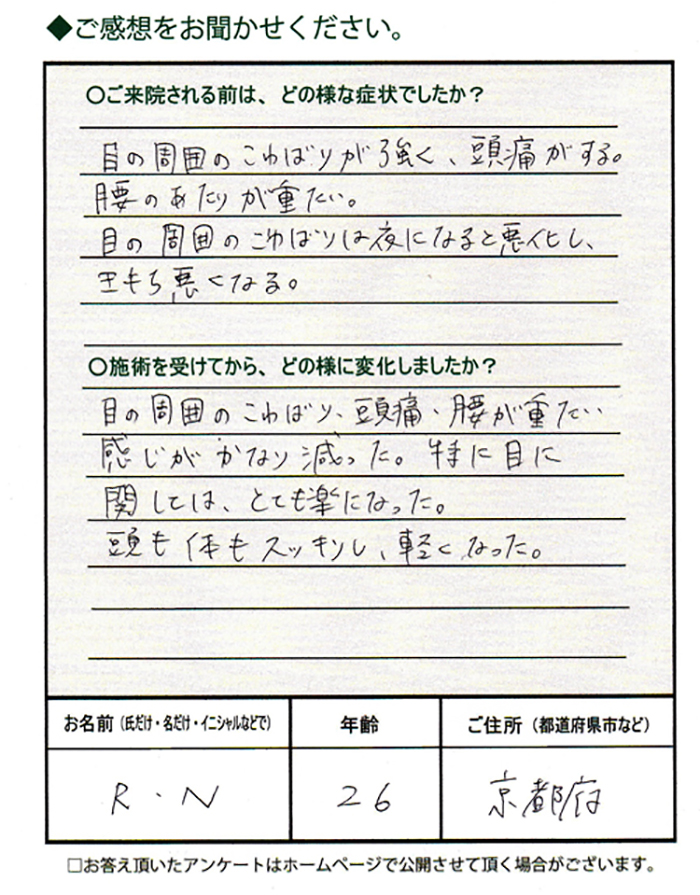 ◆ご感想をお聞かせください。
〇ご来院される前は、どの様な症状でしたか？
目の周囲のこわばりが強く、頭痛がする。
腰のあたりが重たい。
目の周囲のこわばりは夜になると悪化し、
きもち悪くなる。
〇施術を受けてから、どの様に変化しましたか？
目の周囲のこわばり、頭痛、腰が重たい
感じがかなり減った。特に目に
関しては、とても楽になった。
頭も体もスッキリし、軽くなった。
お名前（氏だけ・名だけ・イニシャルなどで） 年齢 ご住所（都道府県市など）
R・N 26 京都府
□お答え頂いたアンケートはホームページで公開させて頂く場合がございます。